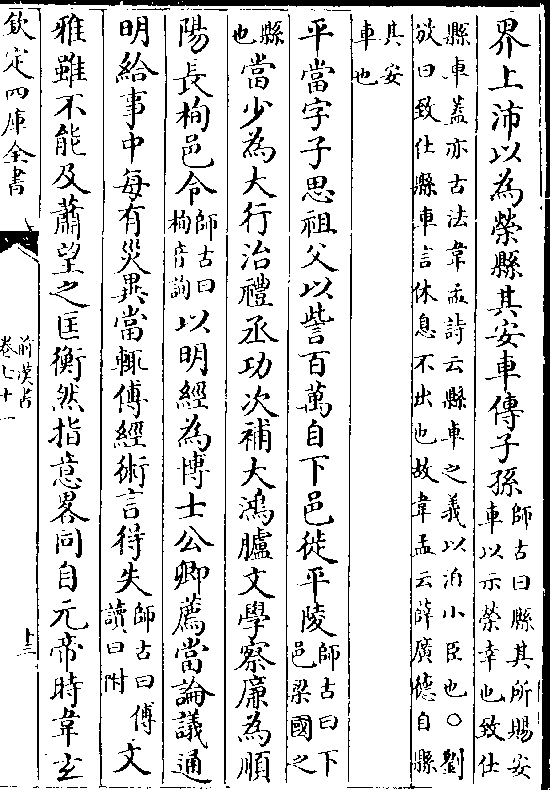 界上沛以為榮縣其安車傳子孫師古曰縣其所賜安車以示榮幸也致仕
縣車蓋亦古法韋孟詩云縣車之義以洎小臣也○劉
攽曰致仕縣車言休息不出也故韋孟云薛廣德自縣
其安車也
平當字子思祖父以訾百萬自下邑徙平陵師古曰下邑梁國之
縣也當少為大行治禮丞功次補大鴻臚文學察廉為順
陽長栒邑令師古曰栒音詢以明經為博士公卿薦當論議通
明給事中每有災異當輒傅經術言得失師古曰傅讀曰附文
雅雖不能及蕭望之匡衡然指意畧同自元帝時韋玄
欽定四庫全書
前漢書
卷七十一
十三